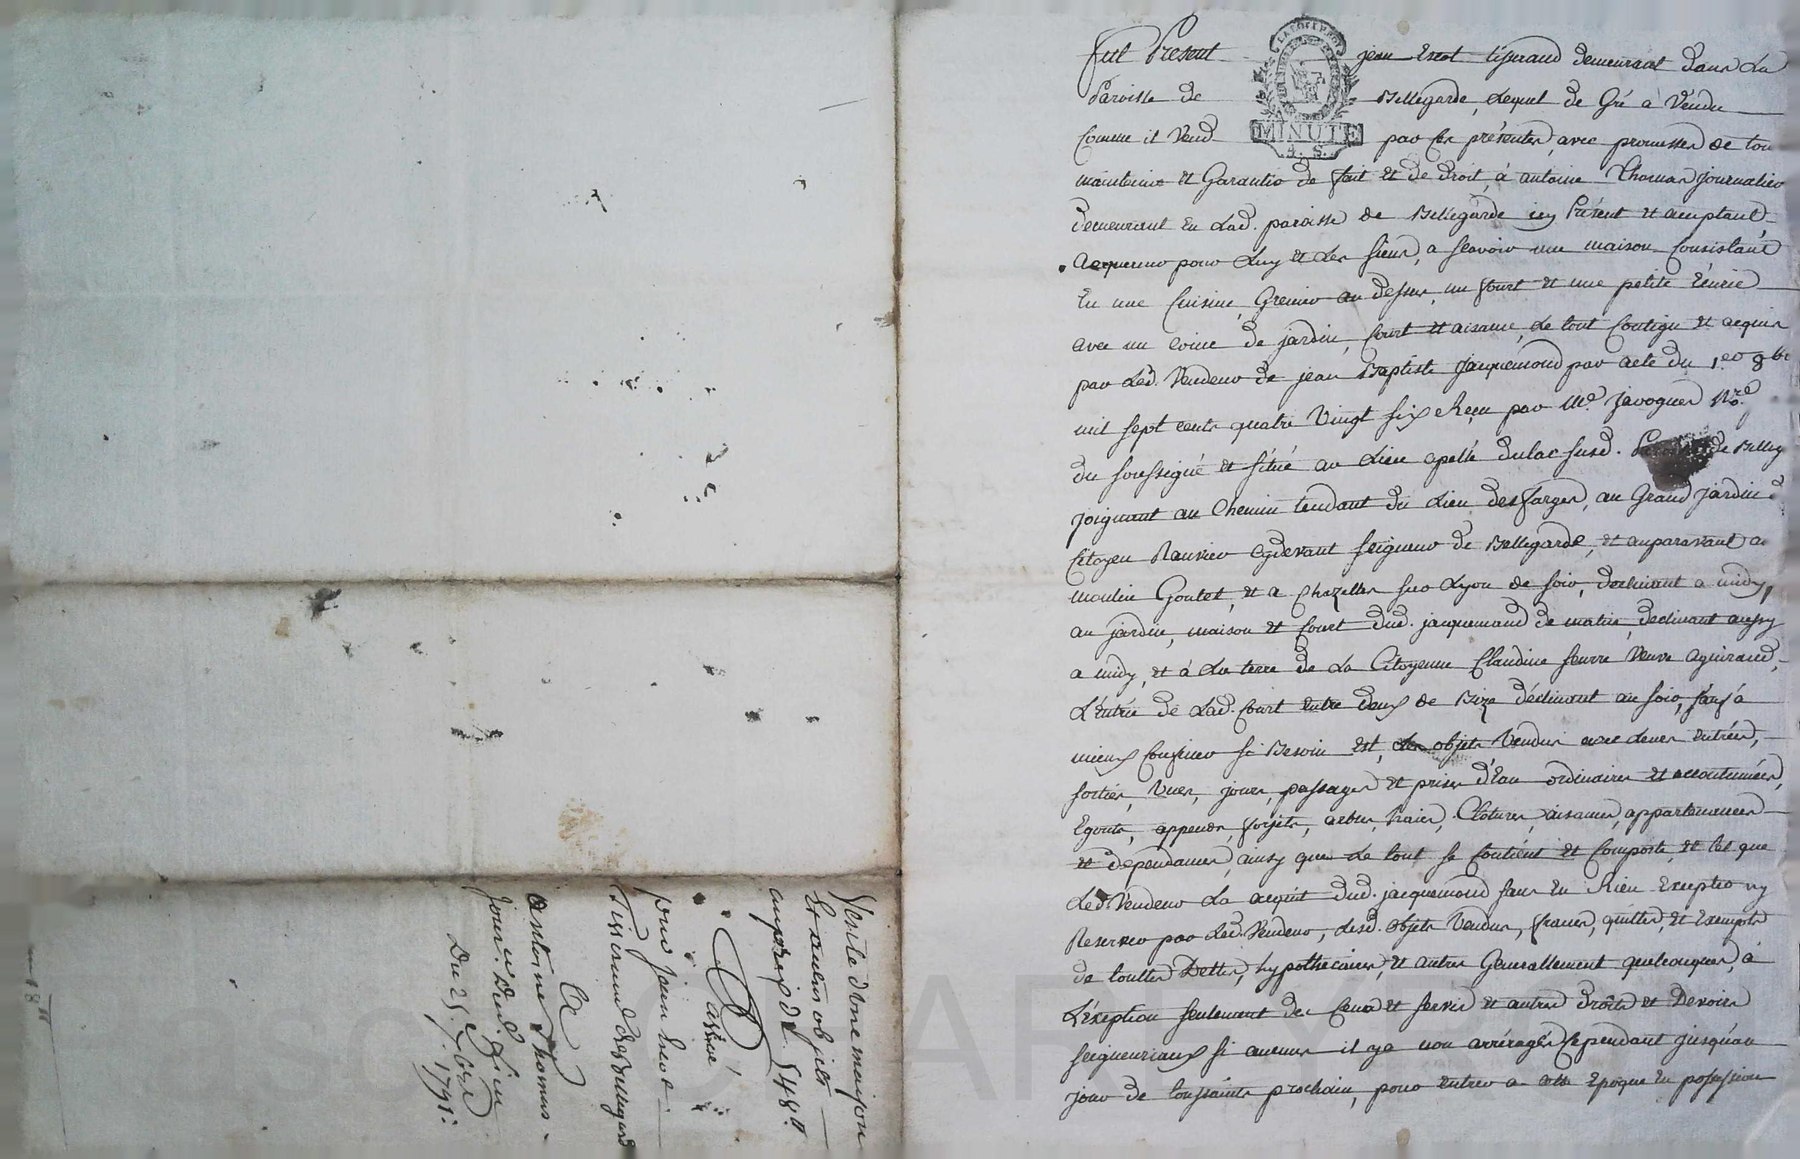 Vente d'une maison
Et autres objets
au prix de 548 ₶
Passée
pour jean Escot
Tisserand de Bellegard
A
antoine Thomas
journ. dud. lieu
Du 25 7bre
1791.
Fut Présent jean Escot tisserand demeurant dans La
Paroisse de Bellegarde, Lequel de Gré a Vendu
Comme il Vend par ces présentes, avec promesses de tou
maintenir et Garantir de fait et de droit, à antoine Thomas journalier
demeurant en Lad. paroisse de Bellegarde icy Présent et acceptant,
acquereur pour Luy et Les siens, a scavoir une maison Consistant
En une Cuisine, Grenier au dessus, un fourt et une petite Ecurie
avec un coin de jardin, Court et aisance, Le tout Contigu et acquis
par Led. Vendeur de jean Baptiste Jacquemond par acte du 1.er 8bre
mil sept cents quatre Vingt six Reçu par Me. Javogues Nre.
du soussigné et situé au Lieu apellé dulac susd. de Belleg
joignant au Chemin tendant du Lieu des farges, au Grand jardin d
Citoyen Ranvier cydevant seigneur de Bellegarde, et auparavant au
moulin Goutet, et a Chazelles sur Lyon de soir, declinant a midy,
au jardin, maison et Court dud. jacquemond de matin, declinant aussy
a midy, et à La terre de La Citoyenne Claudine feuvre Veuve aguiraud,
L'entrée de Lad. Court entre deux de Bize déclinant au soir, sauf à
mieux Confiner si Besoin Est, Les objets Vendus avec Leurs Entrées,
sorties, Vues, jours, passages et prises d'Eau ordinaires et accoutumées,
Egouts, appends, forjets, arbres, haies, Clotures, aisances, appartenances
et dépendances, ainsy que Le tout se Contient et Comporte, et tel que
Led. Vendeur La acquit dud. jacquemond sans En Rien Excepter ny
Reserver par Led. Vendeur, Lesd. objets Vendus, francs, quittes, et Exempts
de touttes Dettes, hypothecaires, et autres Generallement quelconques, à
L'éxeption seulement des Cens et servis et autres droits et Devoirs
seigneuriaux si aucuns il y a non arréragés Cependant jusqu'au
jour de toussaints prochain, pour Entrer a cette Epoque En possession
MINUTE